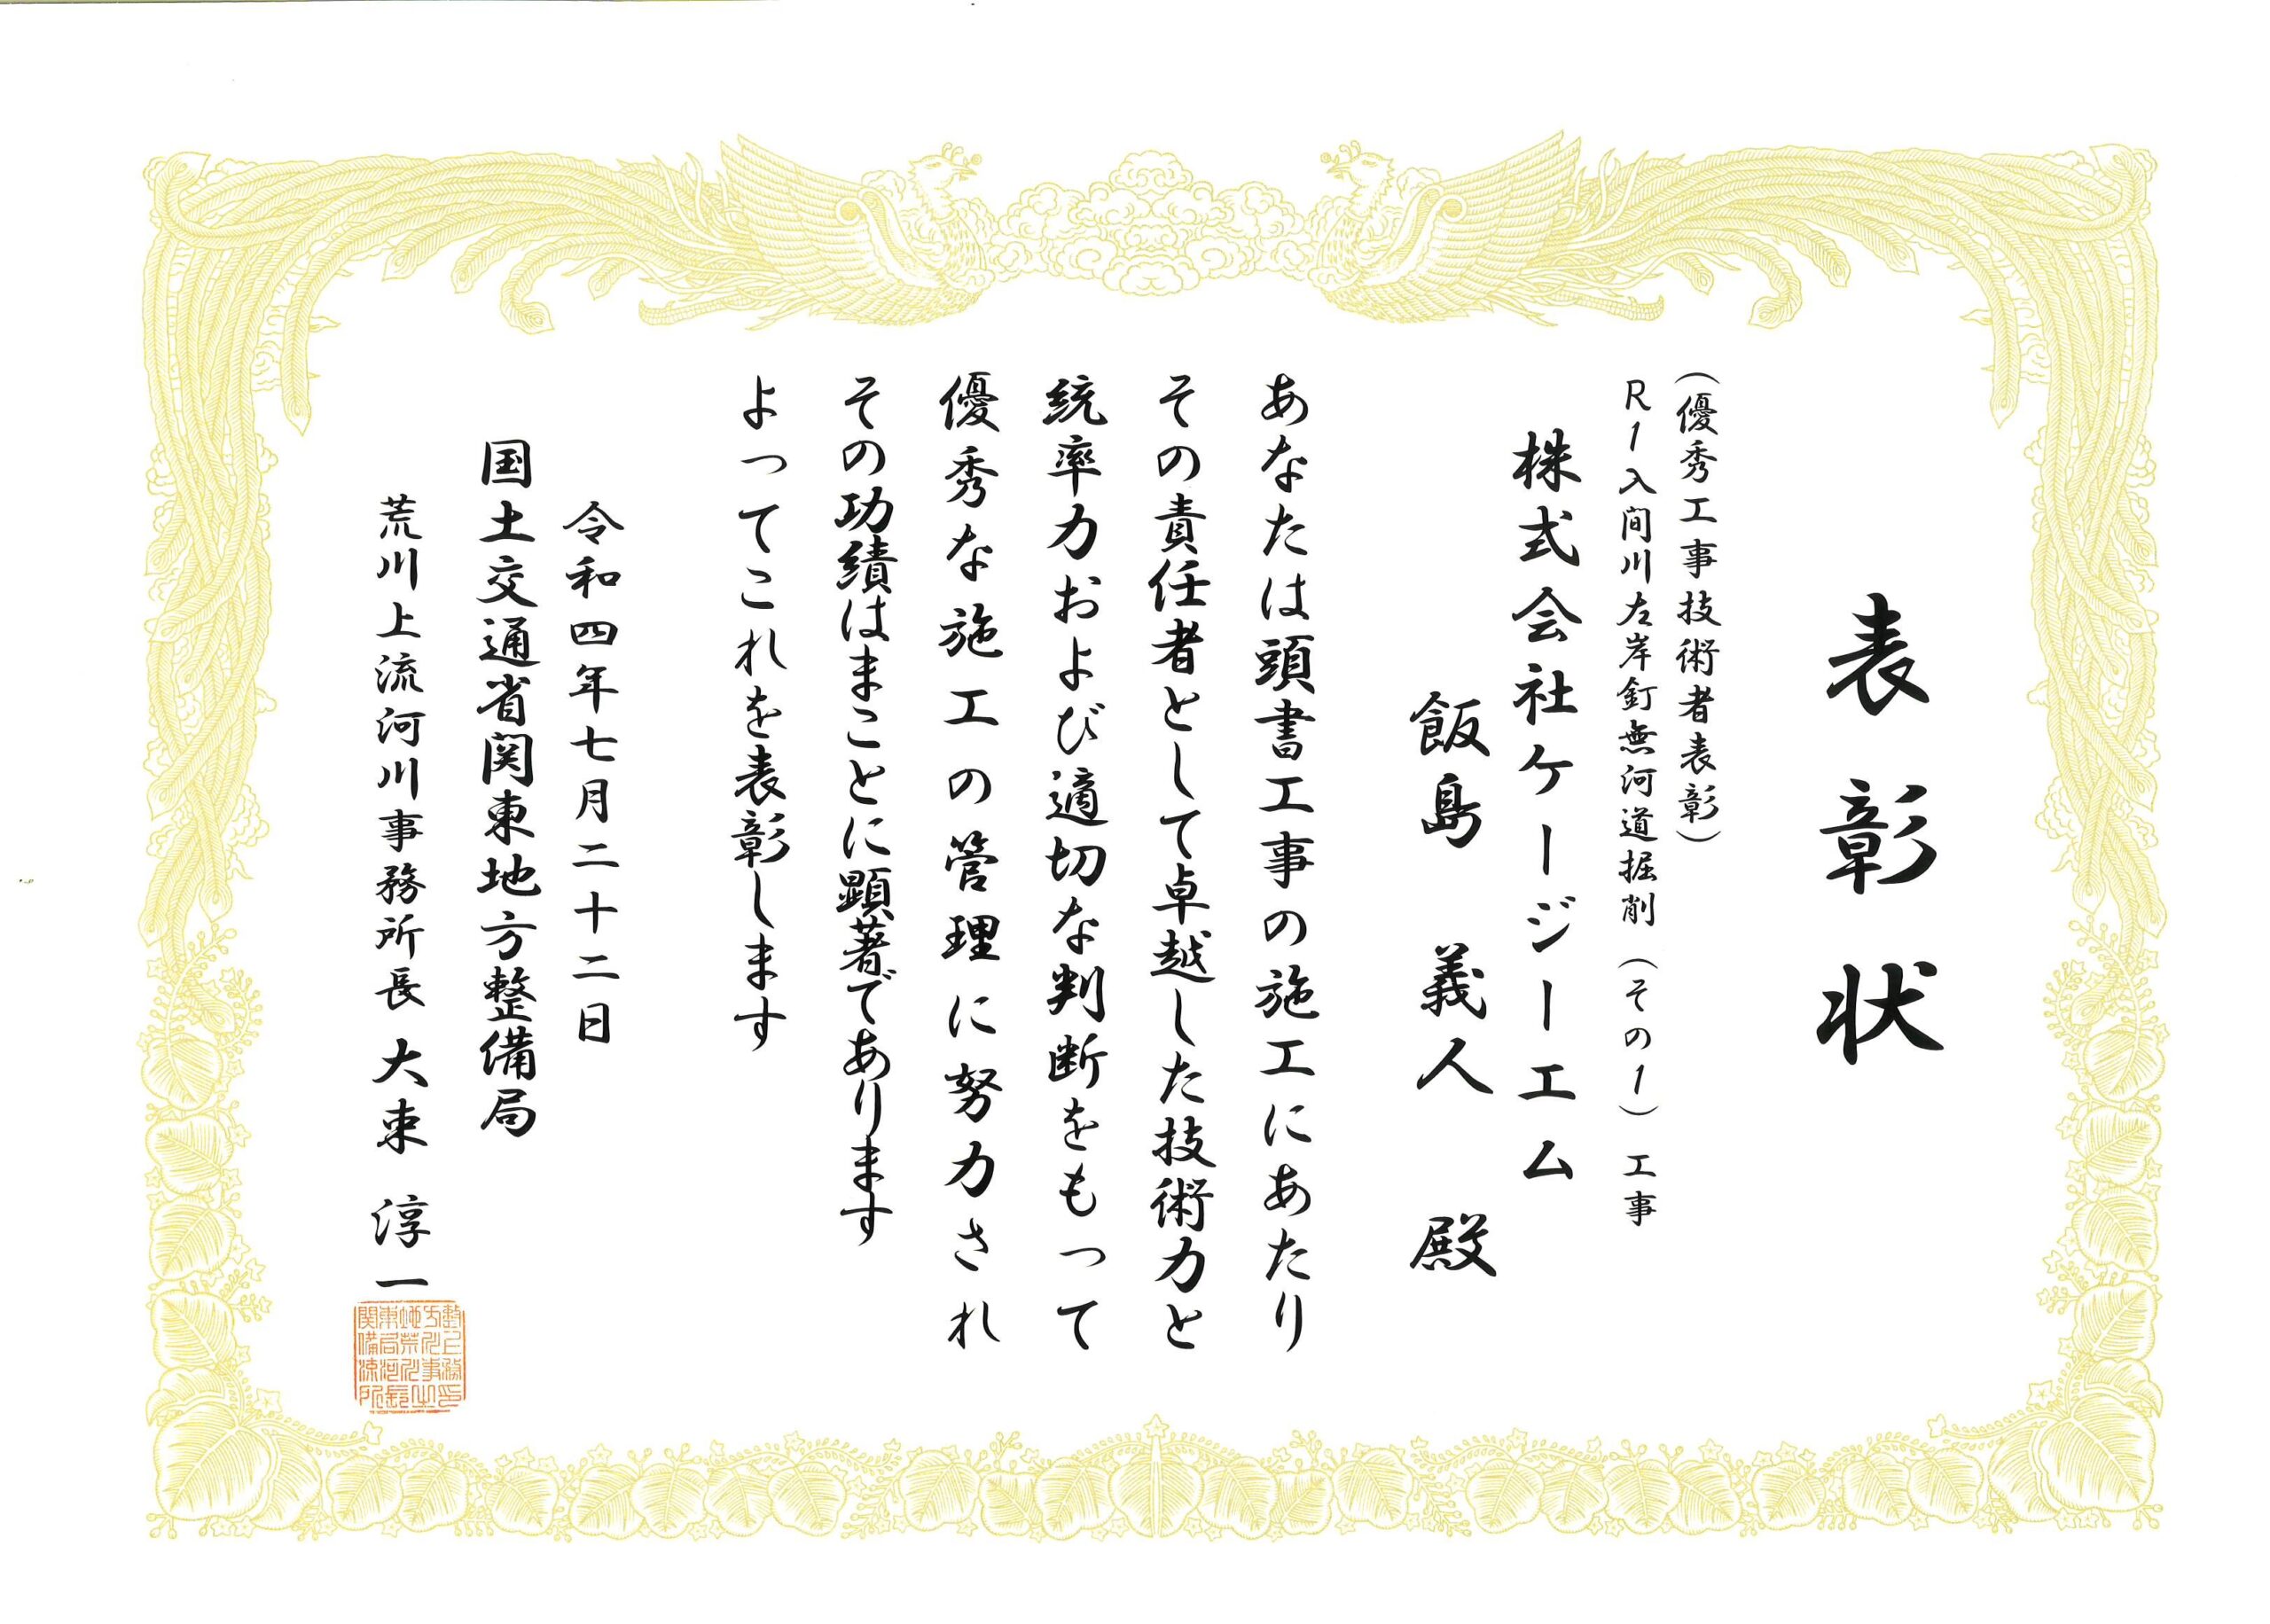 表彰状
（優秀工事技術者表彰）
R1入間川左岸釘無河道掘削（その1）工事
株式会社ケージーエム
飯島 義人 殿
あなたは頭書工事の施工にあたり
その責任者として卓越した技術力と
統率力および適切な判断をもって
優秀な施工の管理に努力され
その功績はまことに顕著であります
よってこれを表彰します
令和四年七月二十二日
国土交通省関東地方整備局
荒川上流河川事務所長 大束 淳一